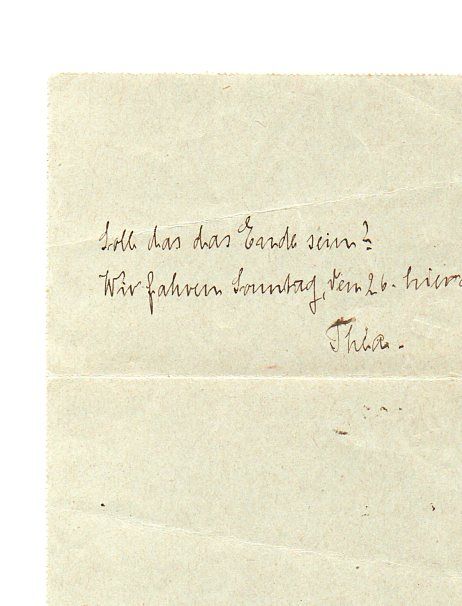 Soll das das Ende sein?
Wir fahren Sonntag, den 26. hier
Thea.